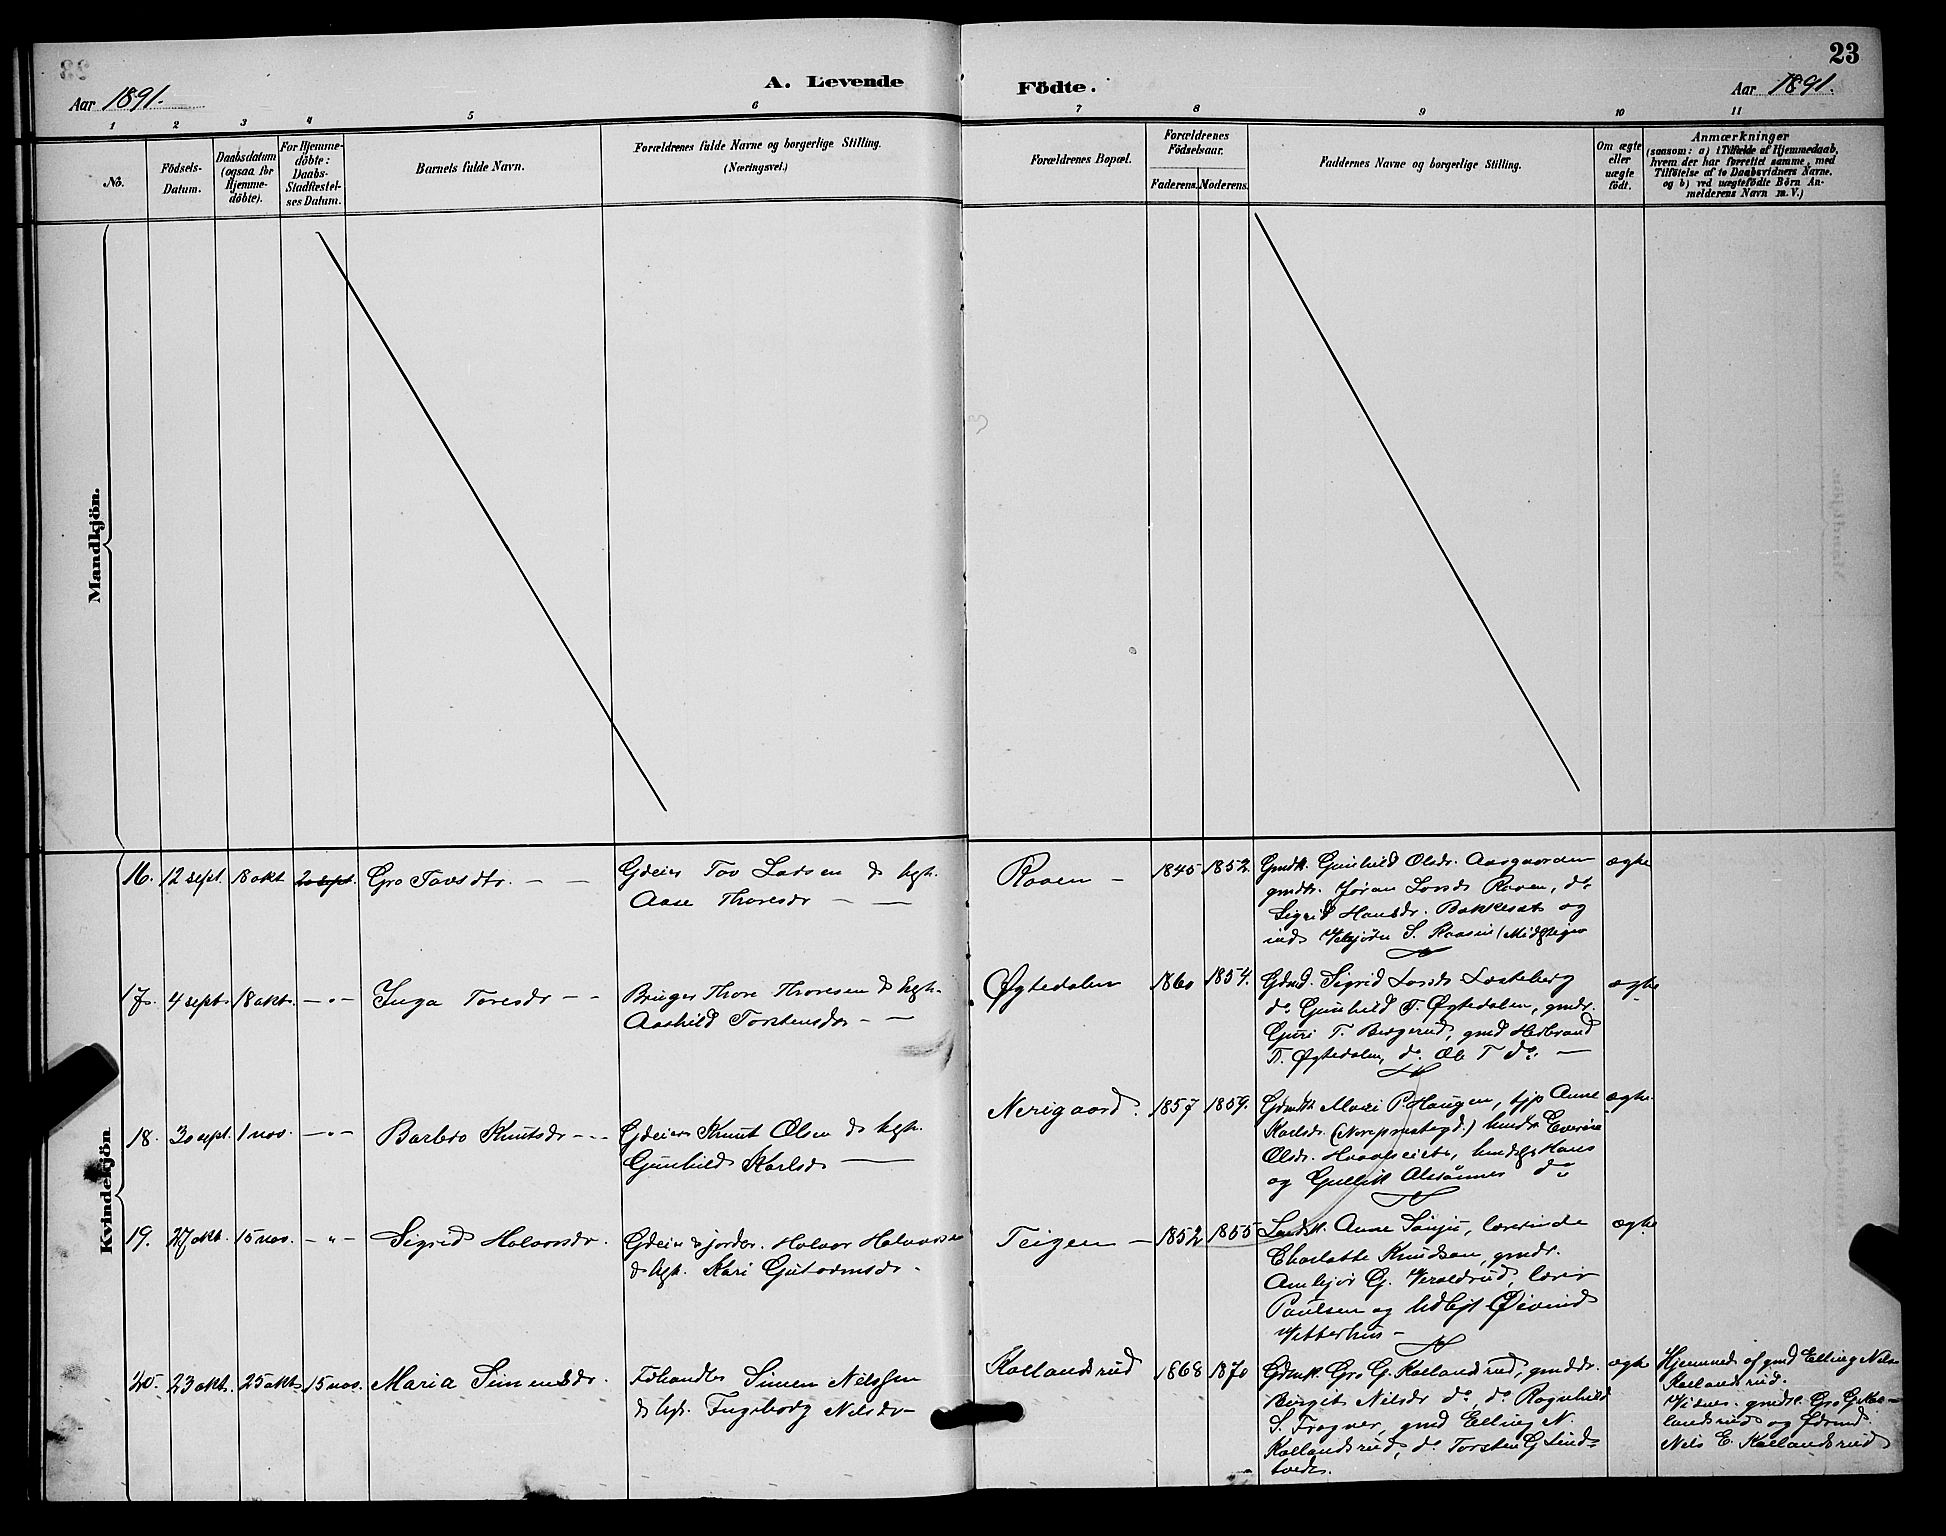 23
A. Levende Födte.
Aar 1891.
Aar 1891.
1 2 3 4 5 6 7 8 9 10 11
No.
Födsels-
Datum.
Daabsdatum
(ogsaa for
Hjemme-
döbte).
For Hjemme-
döbte:
Daabs-
Stadfæstel-
ses Datum.
Barnets fulde Navn.
Forældrenes fulde Navne og borgerlige Stilling.
(Næringsvei.)
Forældrenes Bopæl.
Forældrenes
Födselsaar.
Faderens. Moderens.
Faddernes Navne og borgerlige Stilling.
Om ægte
eller
uægte
födt.
Anmærkninger
(saasom: a) i Tilfælde af Hjemmedaab,
hvem der har forrettet samme, med
Tilföielse af to Daabsvidners Navne,
og b) ved uægtefödte Börn An-
melderens Navn m. V.)
Mandkjön.
Kvindekjön
16. 12 sept. 18 okt 20 sept. Gro Tovsdtr. — —
Gdeier Tov Larsen & hgh.
Aase Thoresdr — —
Raaen — 1845 1852.
Gmdk. Gunhild Olsdr. Aasgaarden
gmdtr. Jøran Larsdr Raaen, do
Sigrid Hansdr. Bakkesat og
ægte
17. 4 sept 18 okt. —"— Inga Toresdr — —
Bruger Thore Thoresen & hgh.
Aashild Torstensdr — —
Øgtedalen 1860 1854.
Gdmd. Sigrid Larsdr
do Gunhild T. Øgtedalen, gmdr.
Guri T. Bergerud, gmd Herbrand
T. Øgtedalen, do. Ole T do. —
ægte
18. 30 sept. 1 nov. —"— Barbro Knutsdr — —
Gdeier Knut Olsen & hgh.
Gunhild Karlsdr —
Nerigaard. 1857 1859.
Gdmdk Mari P. Haugen, tjp Anne
Karlsdr. (Noreprestegd.)
Olsdr.
og Gullik do
ægte.
19. 27 okt. 15 nov. —"— Sigrid Halvorsdr.
Gdeier & jorder. Halvor Halvorsen
& hgh. Kari Guttormsdr.
Teigen — 1852 1855
Anne lærerinde
Charlotte Knudsen, gmdr.
G. Veraldrud, lærer
Paulsen og Øivind
Vetterhus —
ægte
20. 23 okt. 25 okt. 15 nov. Maria Simensdr.
Fdhandler Simen Nilssen
& hgh. Ingeborg Nilsdr —
Kollandsrud 1868 1870
Gdmk. Gro G. Kollandsrud, gmddr.
Birgit Nilsdr do, do Ragnhild
S. Frogner, gmd Elling N.
Kollandsrud, do. Torsten G Lind-
tvedt.
ægte
Hjemmed. af gmd Elling Nils.
Kollandsrud.
Vidner: gmdk. Gro G. Kol-
landsrud og
Nils E. Kollandsrud